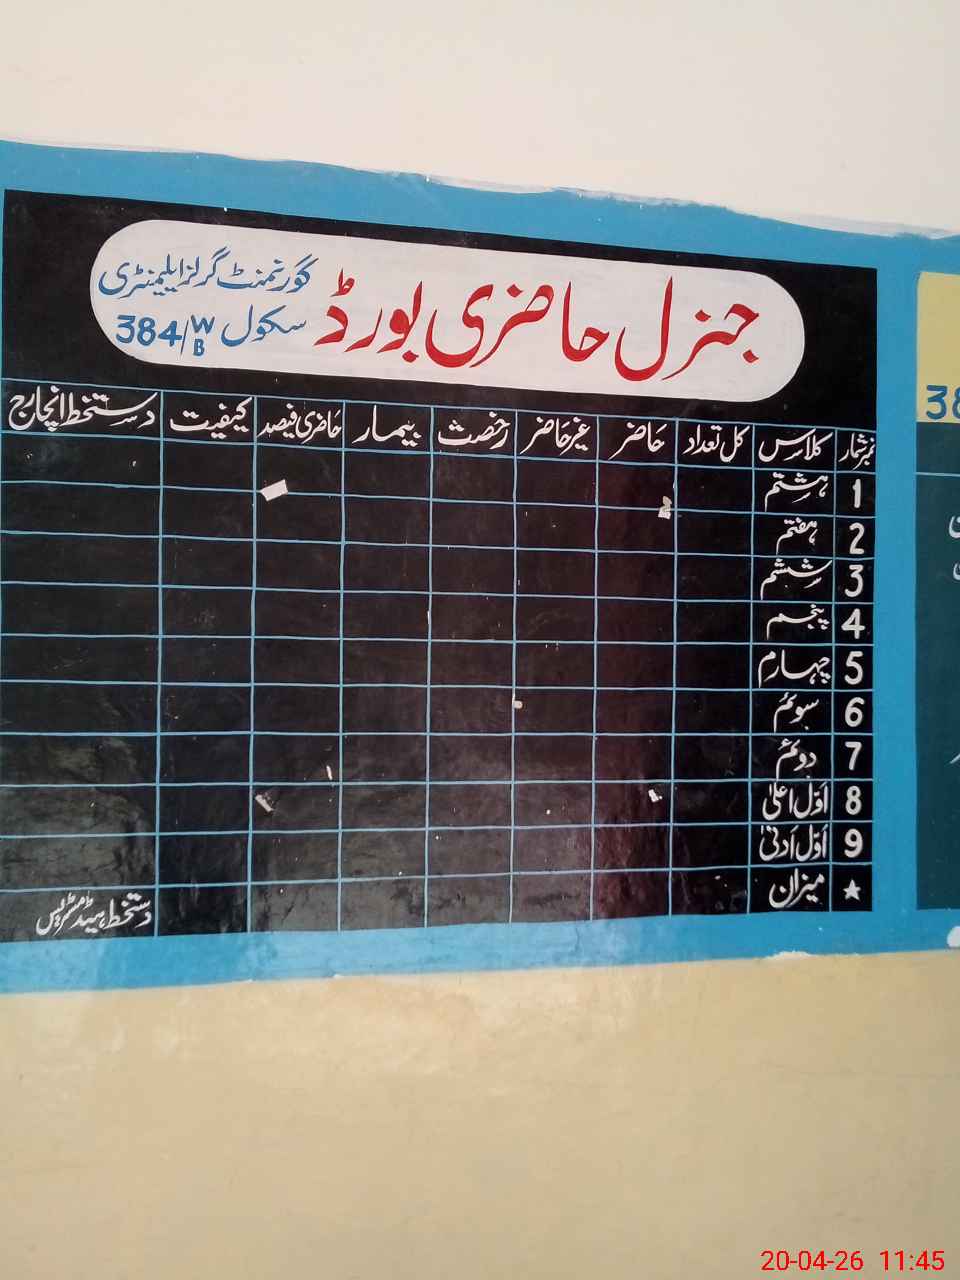 جنرل حاضری بورڈ
گورنمنٹ گرلز ایلیمنٹری
سکول 384/WB
نمبر شمار کلاس کل تعداد حاضر غیر حاضر رخصت بیمار حاضری فیصد کیفیت دستخط انچارج
1 ہشتم
2 ہفتم
3 ششم
4 پنجم
5 چہارم
6 سوئم
7 دوئم
8 اوّل اعلیٰ
9 اوّل ادنیٰ
★ میزان
دستخط ہیڈ مسٹریس
38
20-04-26 11:45